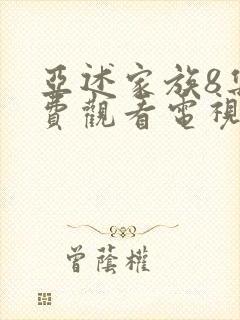 亞述家族8集
費觀看電視
曾蔭權